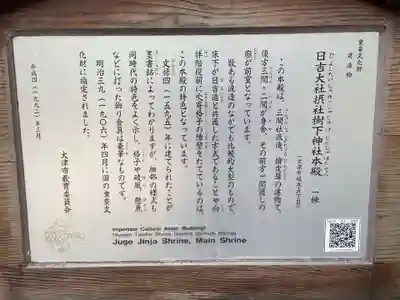 重要文化財
建造物
日吉大社摂社樹下神社本殿 一棟
(大津市坂本五丁目)
この本殿は、三間社流造、檜皮葺の建物で、
後方三間・二間が身舎、その前方一間通しの
廂が前室となっています。
数ある流造のなかでも比較的大型のもので、
床下が日吉造と共通した方式であることや向
拝階段前に吹寄格子の障壁をたてているのは、
この本殿の特色となっています。
文禄四(一五九五)年に建てられたことが
墨書銘によってわかりますが、細部の様式も
同時代の特色をよく示し、格子や破風、懸魚
などに打った飾り金具は豪華なものです。
明治三九(一九〇六)年四月に国の重要文
化財に指定されました。
平成四(一九九二)年三月
大津市教育委員会
Important Cultural Asset (Building)
Juge Jinja Shrine, Main Shrine